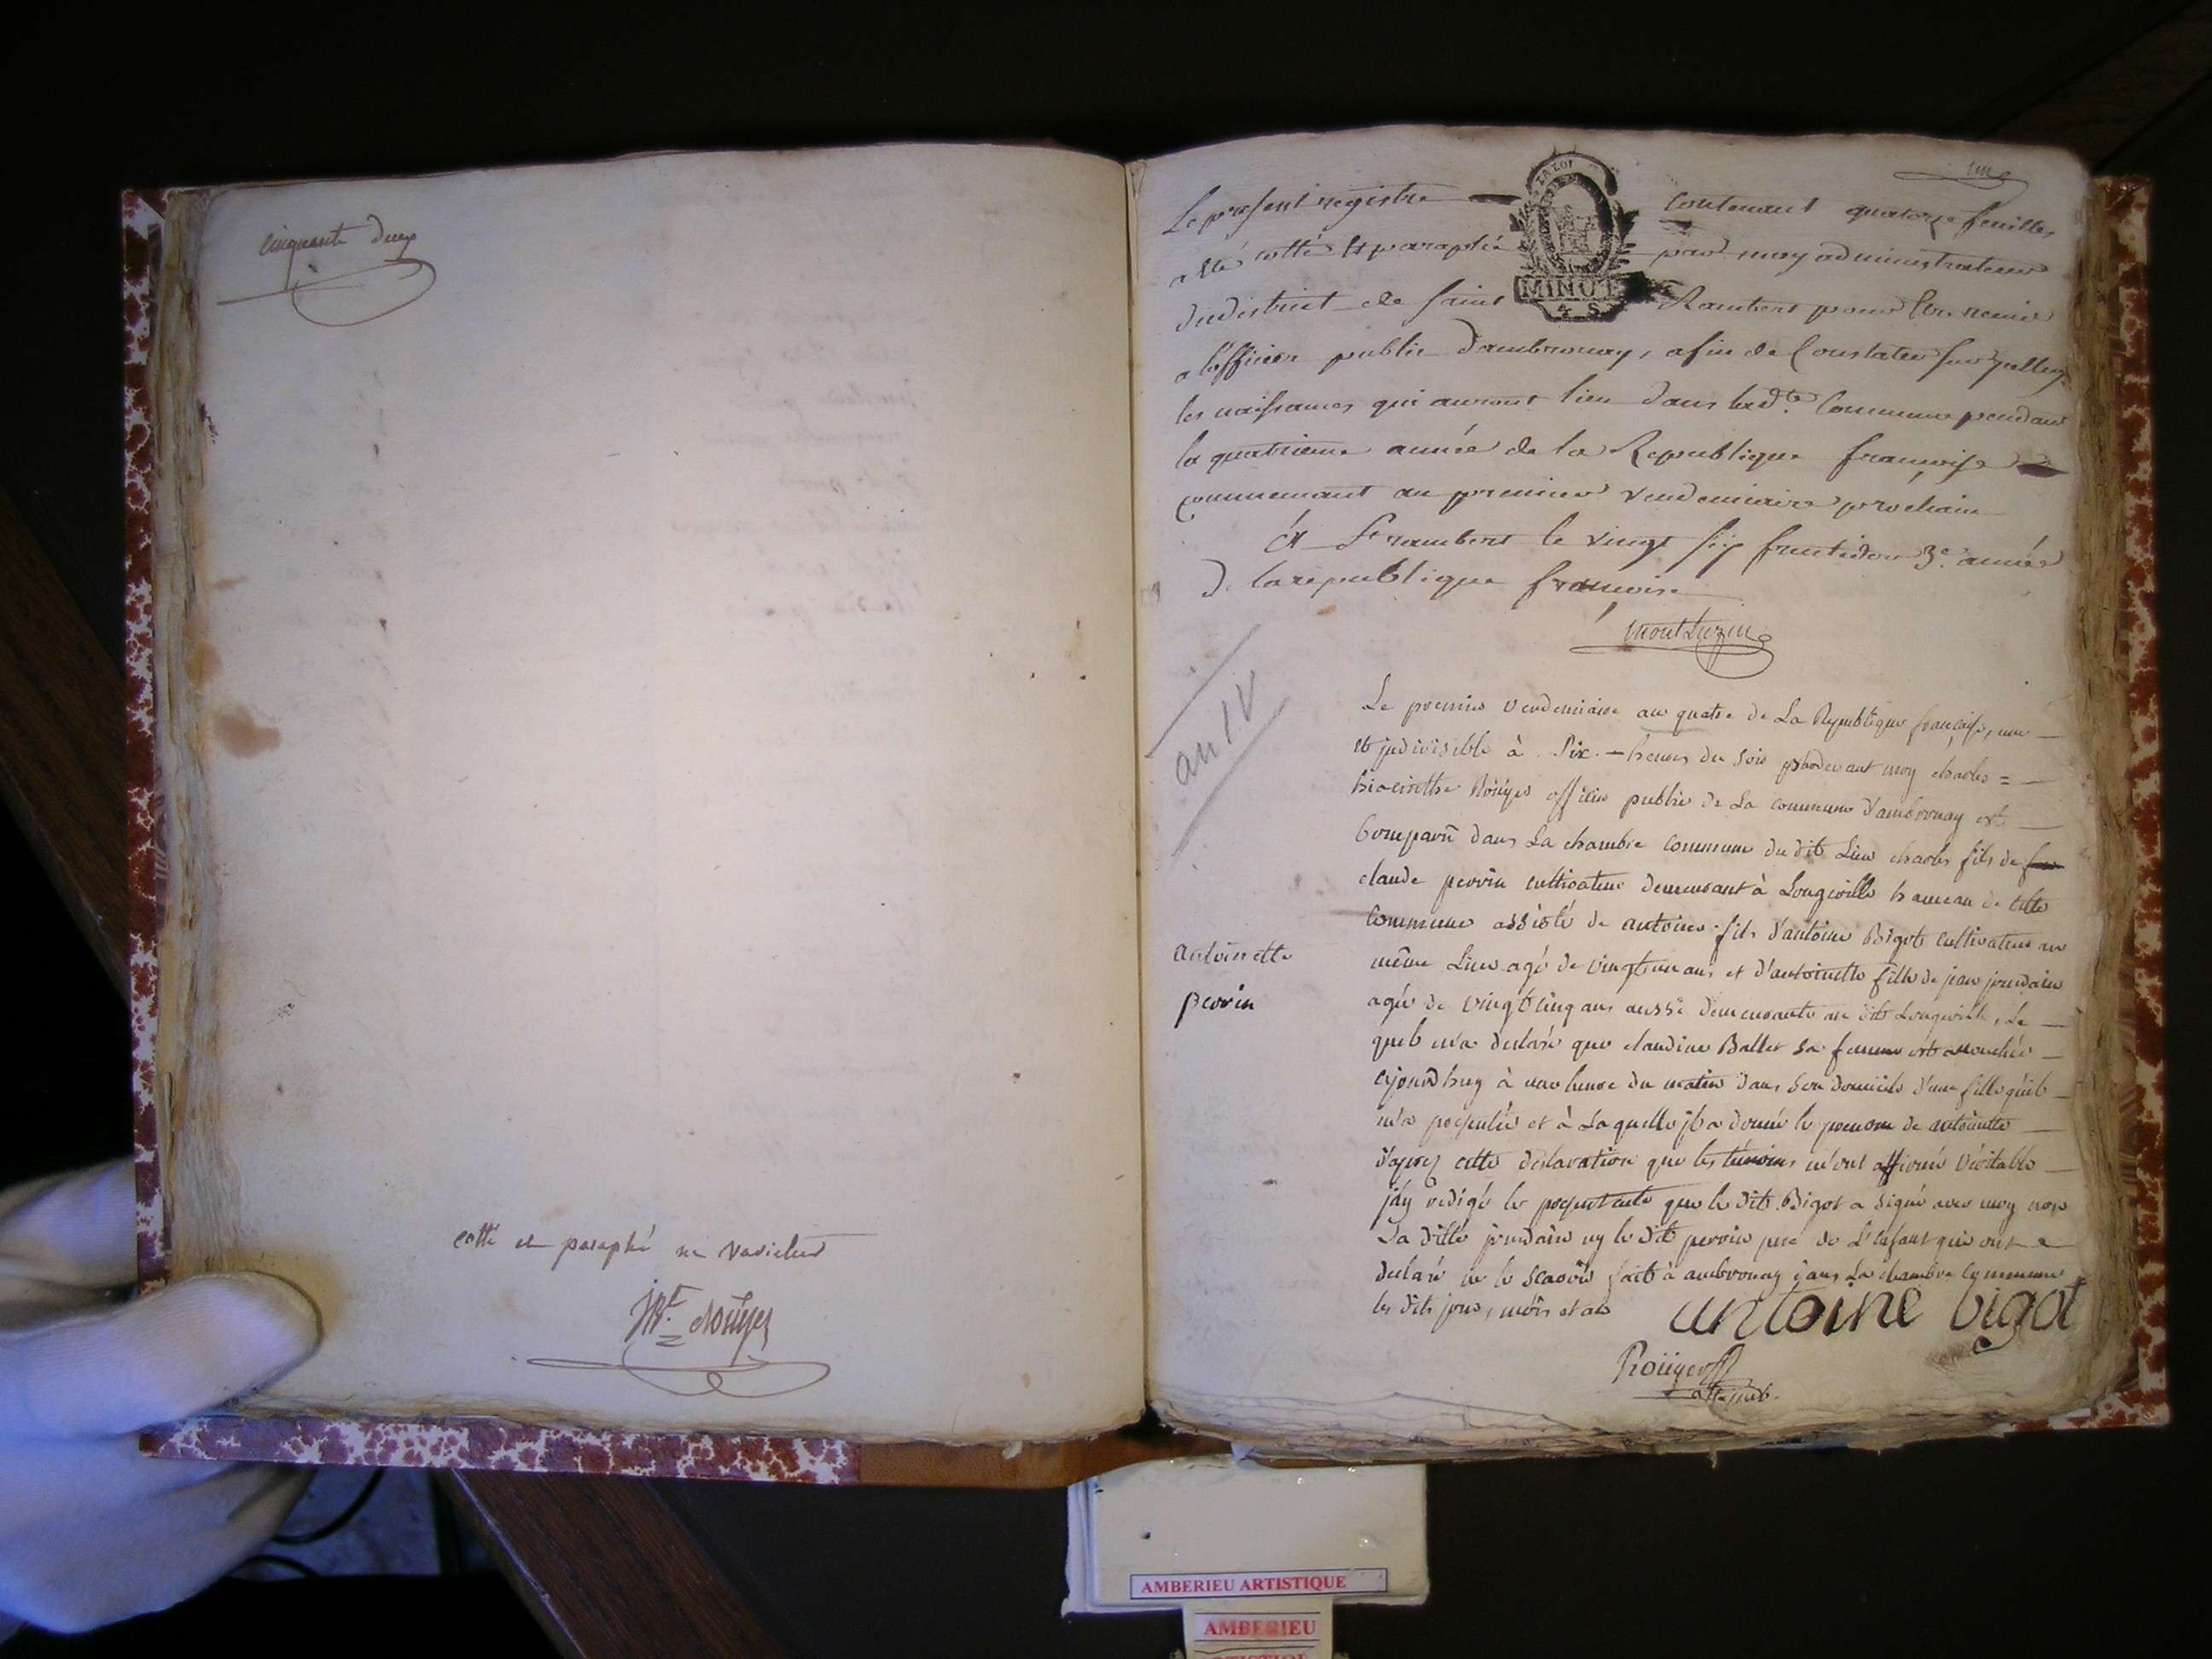 cinquante deux
cotté et paraphé ne varietur
un
Le present registre contenant quatorze feuilles
a été cotté et paraphé par moy administrateur
du district de saint Rambert pour être remis
a l'officier public d'ambronay, afin de Constater sur
les naissances qui auront lieu dans lad.te Commune pendant
la quatrieme année de la Republique françoise
commencant au premier vendemiaire prochain
A St rambert le vingt six fructidor 3.e année
de la republique francoise
LA LOI
MINUT
4 S
Montluzin
an IV
Le premier vendemiaire an quatre de La Republique française, une
et jndivisible à Six heures du soir pardevant moy charles =
hiacinthe Roüyer officier public de La commune d'ambronay est
Comparû dans La chambre commune du dit Lieu charles fils de
claude perrin cultivateur demeurant à Longeville hameau de cette
commune assisté de antoine fils d'antoine Bigot cultivateur au
même Lieu agé de vingt un ans et d'antoinette fille de jean jourdain
agée de vingt cinq ans aussi demeurante au dit Longeville, Le
quel m'a declaré que claudine Ballet sa femme est accouchée
ajourdhuy à une heure du matin dans son domicile d'une fille qu'il
m'a presentée et à Laquelle jl a donné le prenom de antoinette
d'apres cette declaration que les temoins m'ont affirmé veritable
j'ay redigé le present acte que le dit Bigot a signé avec moy non
La ditte jourdain ny le dit perrin pere de L'enfant qui ont
declaré ne le scavoir fait à ambronay dans La chambre commune
les dits jour, mois et an
Antoinette
perrin
antoine bigot
Roüyer
off. pub.
AMBERIEU ARTISTIQUE
AMBERIEU
ARTISTIQUE